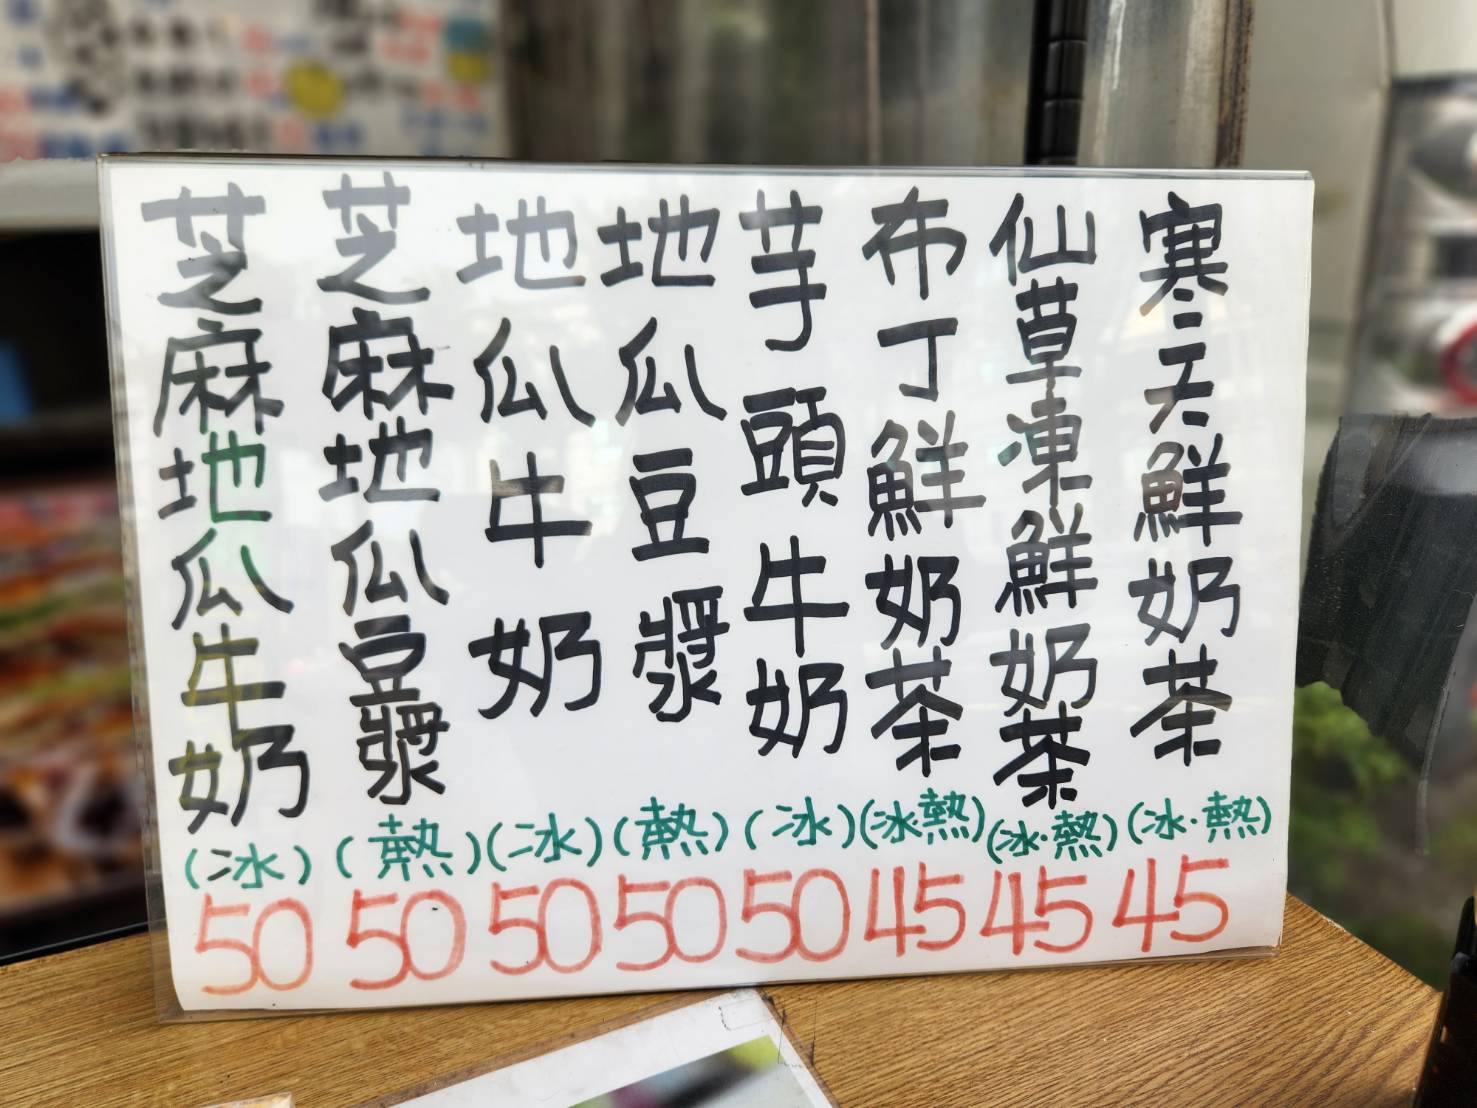 寒天鮮奶茶
(冰.熱)
45
仙草凍鮮奶茶
(冰.熱)
45
布丁鮮奶茶
(冰熱)
45
芋頭牛奶
(冰)
50
地瓜豆漿
(熱)
50
地瓜牛奶
(冰)
50
芝麻地瓜豆漿
(熱)
50
芝麻地瓜牛奶
(冰)
50